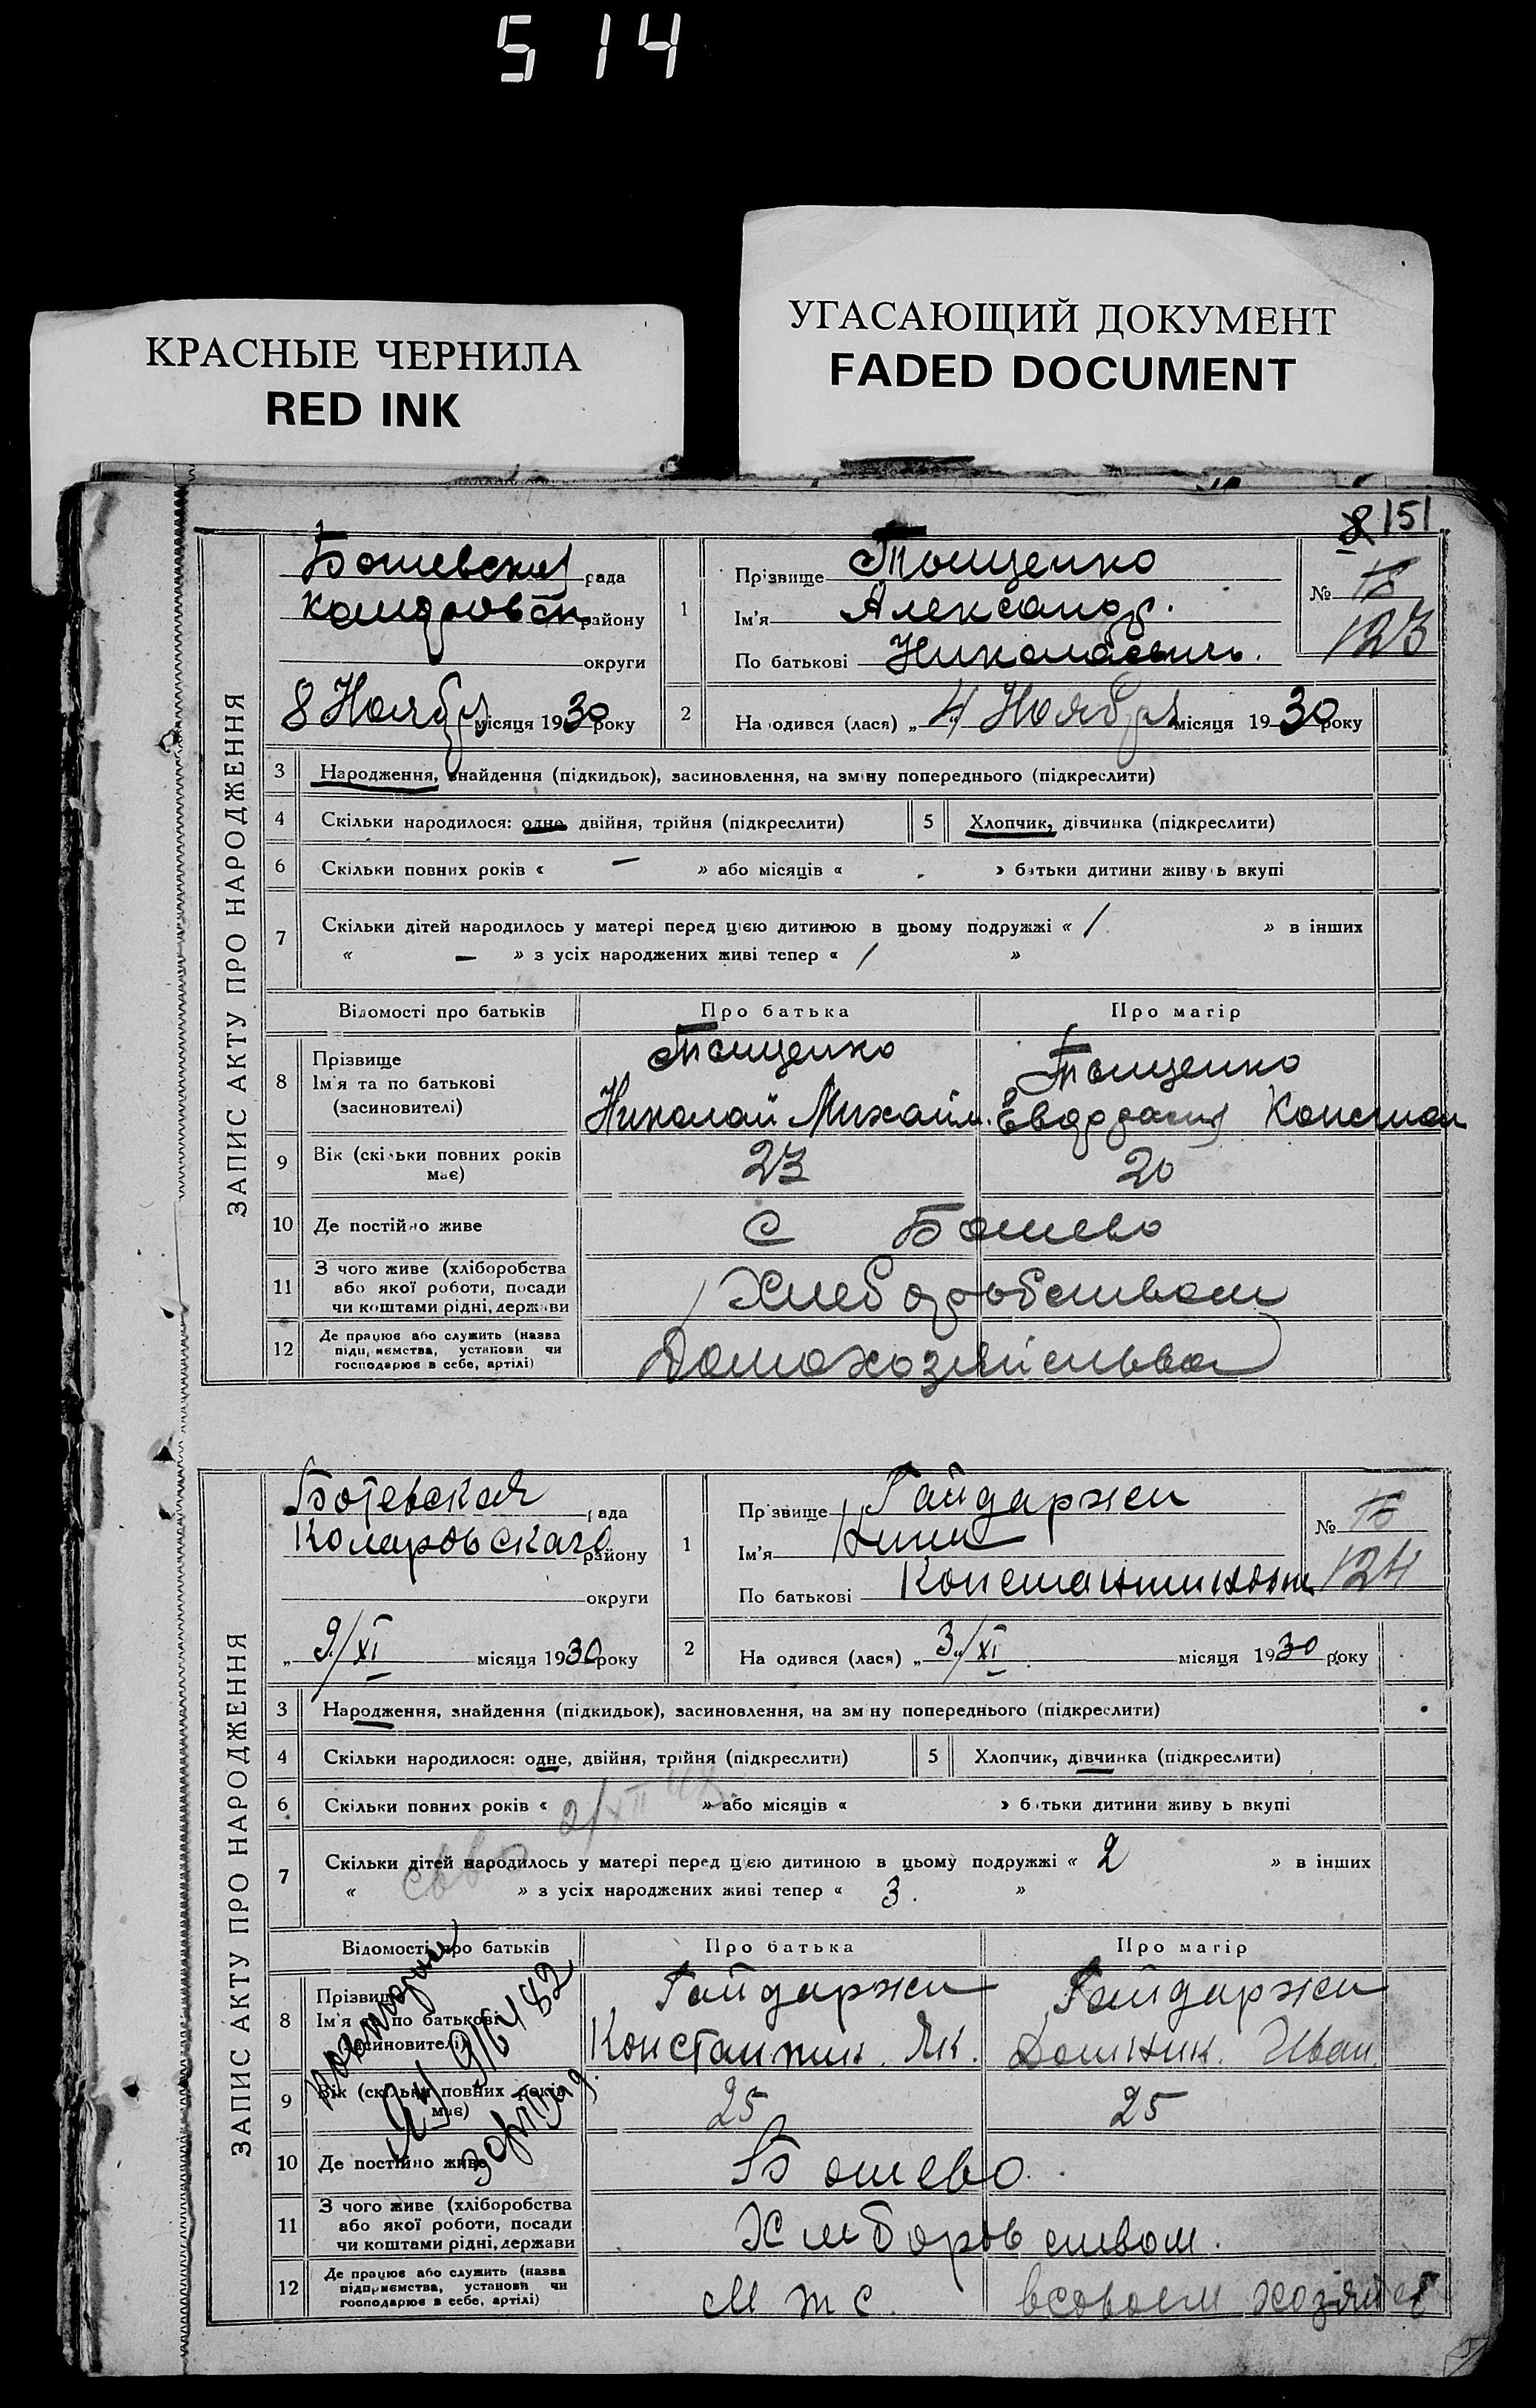 5 14
КРАСНЫЕ ЧЕРНИЛА
RED INK
УГАСАЮЩИЙ ДОКУМЕНТ
FADED DOCUMENT
8 151
ЗАПИС АКТУ ПРО НАРОДЖЕННЯ
Ботевская рада
района
округи
8 Ноября місяця 1930 року
1
Прізвище Тищенко
Ім'я Александр.
По батькові Николаевич.
№ 15
123
2 На одився (лася) „ 4 Ноября місяця 1930 року
3 Народження, знайдення (підкидьок), засиновлення, на зміну попереднього (підкреслити)
4 Скільки народилося: одне, двійня, трійня (підкреслити) 5 Хлопчик, дівчинка (підкреслити)
6 Скільки повних років « — » або місяців « » батьки дитини живу ь вкупі
7 Скільки дітей народилось у матері перед цією дитиною в цьому подружжі « 1 » в інших
« — » з усіх народжених живі тепер « 1 »
Відомості про батьків Про батька Про матір
8 Прізвище
Ім'я та по батькові
(засиновителі)
Тищенко Тищенко
Николай Михайл. Евдокия Констан
9 Вік (скільки повних років має) 23 20
10 Де постійно живе С Ботево
11 З чого живе (хліборобства
або якої роботи, посади
чи коштами рідні, держави
Хлеборобством
12 Де працює або служить (назва
підприємства, установи чи
господарює в себе, артілі)
Домохозяйства
ЗАПИС АКТУ ПРО НАРОДЖЕННЯ
Ботевская рада
Коларовскаго району
округи
„ 9/XI місяця 1930 року
1
Пр звище Гайдаржи
Ім'я
По батькові Константиновн
№ 16
124
2 На одився (лася) „ 3/XI місяця 1930 року
3 Народження, знайдення (підкидьок), засиновлення, на зм ну попереднього (підкреслити)
4 Скільки народилося: одне, двійня, трійня (підкреслити) 5 Хлопчик, дівчинка (підкреслити)
6 Скільки повних років « » або місяців « » б тьки дитини живу ь вкупі
7 Скільки дітей народилось у матері перед цією дитиною в цьому подружжі « 2 » в інших
« » з усіх народжених живі тепер « 3. »
Відомості про батьків Про батька Про матір
8 Прізвище
Ім'я та по батькові
(засиновителі)
Гайдаржи Гайдаржи
Константин. Як. Домник. Иван.
9 Вік (скільки повних років має) 25 25
10 Де постійно живе Ботево.
11 З чого живе (хліборобства
або якої роботи, посади
чи коштами рідні, держави
Хлеборобством.
12 Де працює або служить (назва
підприємства, установи чи
господарює в себе, артілі)
М т с. в своем хозяйств